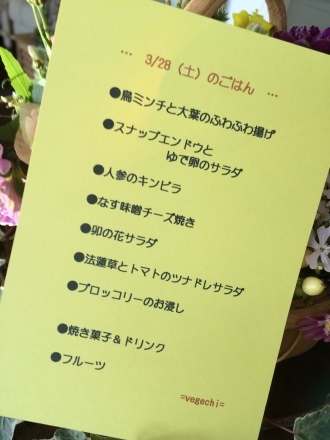 … 3/28（土）のごはん …
●鳥ミンチと大葉のふわふわ揚げ
●スナップエンドウと
ゆで卵のサラダ
●人参のキンピラ
●なす味噌チーズ焼き
●卯の花サラダ
●法蓮草とトマトのツナドレサラダ
●ブロッコリーのお浸し
●焼き菓子＆ドリンク
●フルーツ
=vegechi=